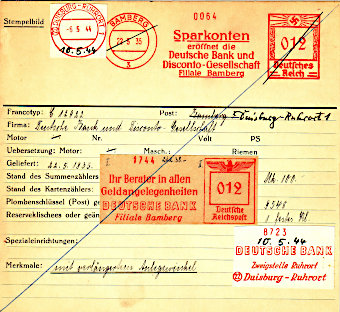 Stempelbild
DUISBURG-RUHRORT 1
-6 5 44
10.5.44
BAMBERG
22 5 35
3
0064
Sparkonten
eröffnet die
Deutsche Bank und
Disconto-Gesellschaft
Filiale Bamberg
012
Deutsches
Reich
Francotyp: C
Post: Bamberg Duisburg-Ruhrort 1
Firma: Deutsche Bank und Disconto-Gesellschaft
Motor
Volt
PS
Uebersetzung: Motor
Masch.:
Riemen
Geliefert: 22.5.1935.
1744
Stand des Summenzählers
Stand des Kartenzählers:
Plombenschlüssel (Post)
Reserveklischees oder
Ihr Berater in allen
Geldangelegenheiten
DEUTSCHE BANK
Filiale Bamberg
012
Deutsche
Reichspost
100.-
Spezialeinrichtungen:
8723
10.5.44
DEUTSCHE BANK
Zweigstelle Ruhrort
Duisburg-Ruhrort
Merkmale: mit verlängertem Anlegewinkel